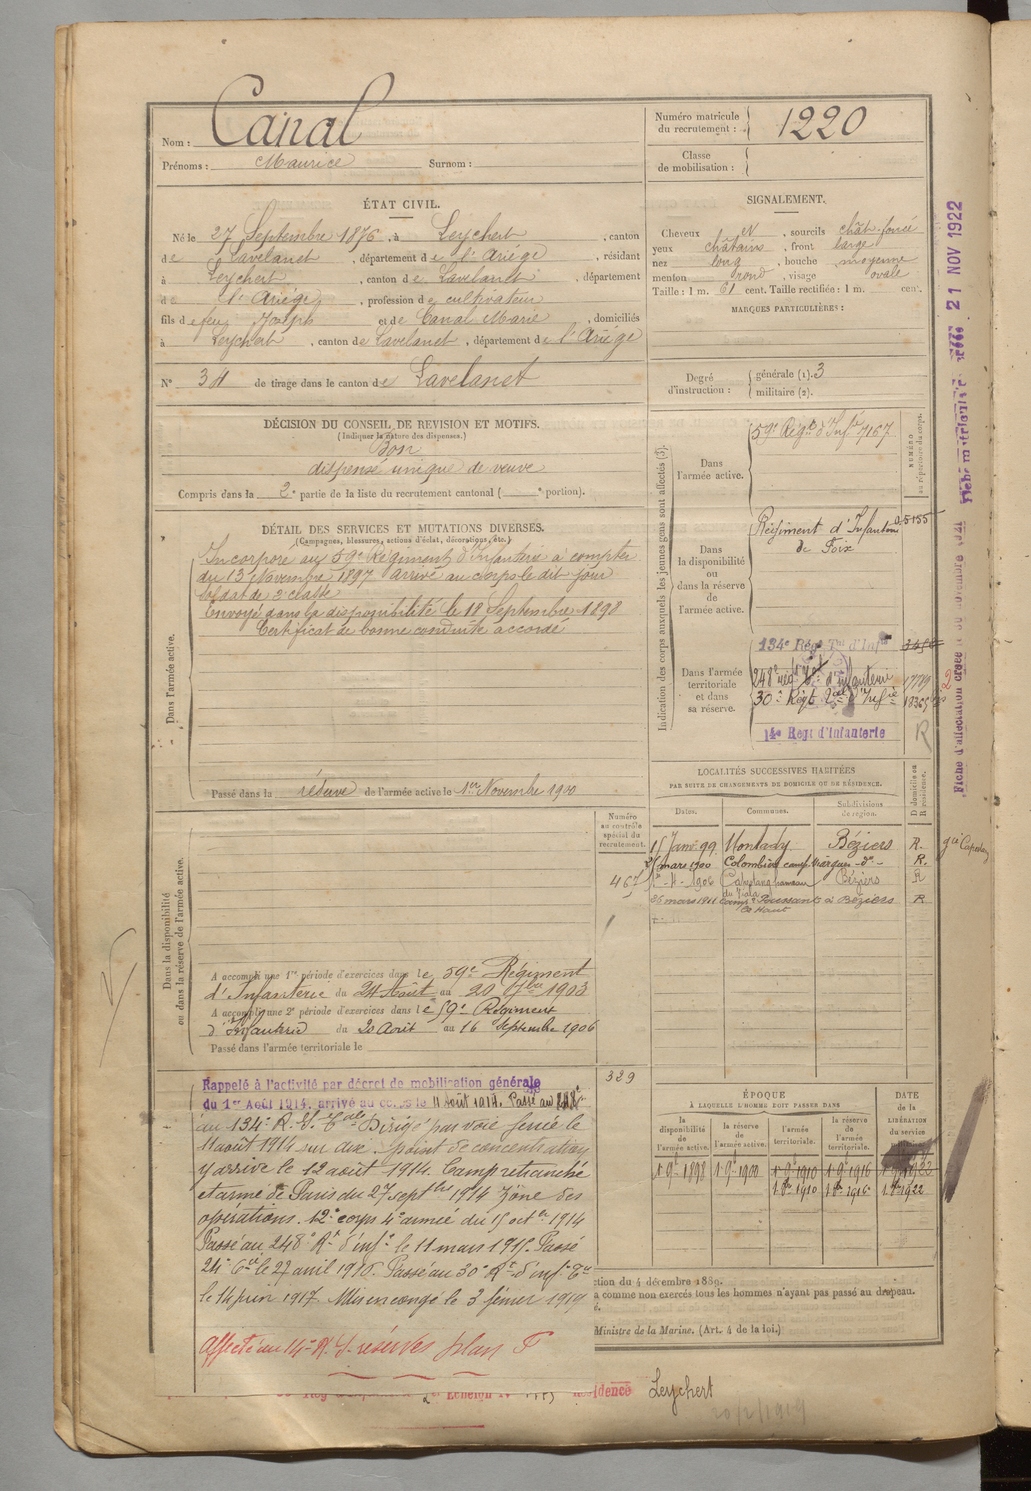 Nom : Canal
Prénoms : Maurice Surnom :
Numéro matricule du recrutement : 1220
Classe de mobilisation :
ÉTAT CIVIL.
Né le 27 Septembre 1876, à Leychert, canton
de Lavelanet, département de l'Ariège, résidant
à Leychert, canton de Lavelanet, département
de l'Ariège, profession de cultivateur
fils de feu Joseph et de Canal Marie, domiciliés
à Leychert, canton de Lavelanet, département de l'Ariège
N° 34 de tirage dans le canton de Lavelanet
SIGNALEMENT.
Cheveux et, sourcils chât. foncé
yeux châtains, front large
nez long, bouche moyenne
menton rond, visage ovale
Taille : 1 m. 61 cent. Taille rectifiée : 1 m. cent.
MARQUES PARTICULIÈRES :
Degré d'instruction : générale (1). 3
militaire (2).
DÉCISION DU CONSEIL DE REVISION ET MOTIFS.
(Indiquer la nature des dispenses.)
Bon
dispensé unique de veuve
Compris dans la 2e partie de la liste du recrutement cantonal ( e portion).
DÉTAIL DES SERVICES ET MUTATIONS DIVERSES.
(Campagnes, blessures, actions d'éclat, décorations, etc.)
Dans l'armée active.
Incorporé au 59e Régiment d'Infanterie à compter
du 13 Novembre 1897 arrivé au corps le dit jour
Soldat de 2e classe
Envoyé dans la disponibilité le 18 Septembre 1898
Certificat de bonne conduite accordé
Passé dans la réserve de l'armée active le 1er Novembre 1900
Indication des corps auxquels les jeunes gens sont affectés (3).
NUMÉRO au répertoire du corps.
Dans l'armée active.
59e Régt d'Infie 7167
Dans la disponibilité ou dans la réserve de l'armée active.
Régiment d'Infanterie 05155
de Foix
Dans l'armée territoriale et dans sa réserve.
134e Rég. Tal d'Infie
248e régt d'infanterie
30e Régt Tal d'Infie
14e Régt d'Infanterie
R
2
LOCALITÉS SUCCESSIVES HABITÉES
PAR SUITE DE CHANGEMENTS DE DOMICILE OU DE RÉSIDENCE.
Dates. Communes. Subdivisions de région. D domicile ou R résidence.
15 Janv. 99 Montady Béziers R.
25 mars 1900 Colombiers camp. Viargues -do- R.
1906 Capestang hameau Béziers R
26 mars 1911 Camp. Poussan le Haut à Béziers R
Numéro au contrôle spécial du recrutement.
467
Dans la disponibilité ou dans la réserve de l'armée active.
A accompli une 1re période d'exercices dans le 59e Régiment
d'Infanterie du 24 Août au 20 7bre 1903
A accompli une 2e période d'exercices dans le 59e Régiment
d'Infanterie du 20 Août au 16 Septembre 1906
Passé dans l'armée territoriale le
329
Rappelé à l'activité par décret de mobilisation générale
du 1er Août 1914, arrivé au corps le 11 août 1914. Passé au
au 134e R. I. Tale Dirigé par voie ferrée le
11 août 1914 sur point de concentration
y arrive le 12 août 1914. Camp retranché
et armé de Paris du 27 septbre 1914 Zône des
opérations. 12e corps 4e armée du 15 octbre 1914
Passé au 248e Rt d'infie le 11 mars 1915. Passé
24e Cie le 27 avril 1916. Passé au 30e Rt d'infie Tle
le 14 juin 1917. Mis en congé le 3 février 1919
Affecté au 14e R. I. réserves plan T
ÉPOQUE
À LAQUELLE L'HOMME DOIT PASSER DANS
la disponibilité de l'armée active. la réserve de l'armée active. l'armée territoriale. la réserve de l'armée territoriale.
DATE de la LIBÉRATION du service
1 9bre 1898 1 9bre 1900 1 9bre 1910 1 9bre 1916
1 8bre 1910 1 8bre 1916 1 8bre 1922
ction du 4 décembre 1889.
a comme non exercés tous les hommes n'ayant pas passé au drapeau.
é.
Ministre de la Marine. (Art. 4 de la loi.)
Echelon résidence Leychert
20/2/1919
21 NOV 1922